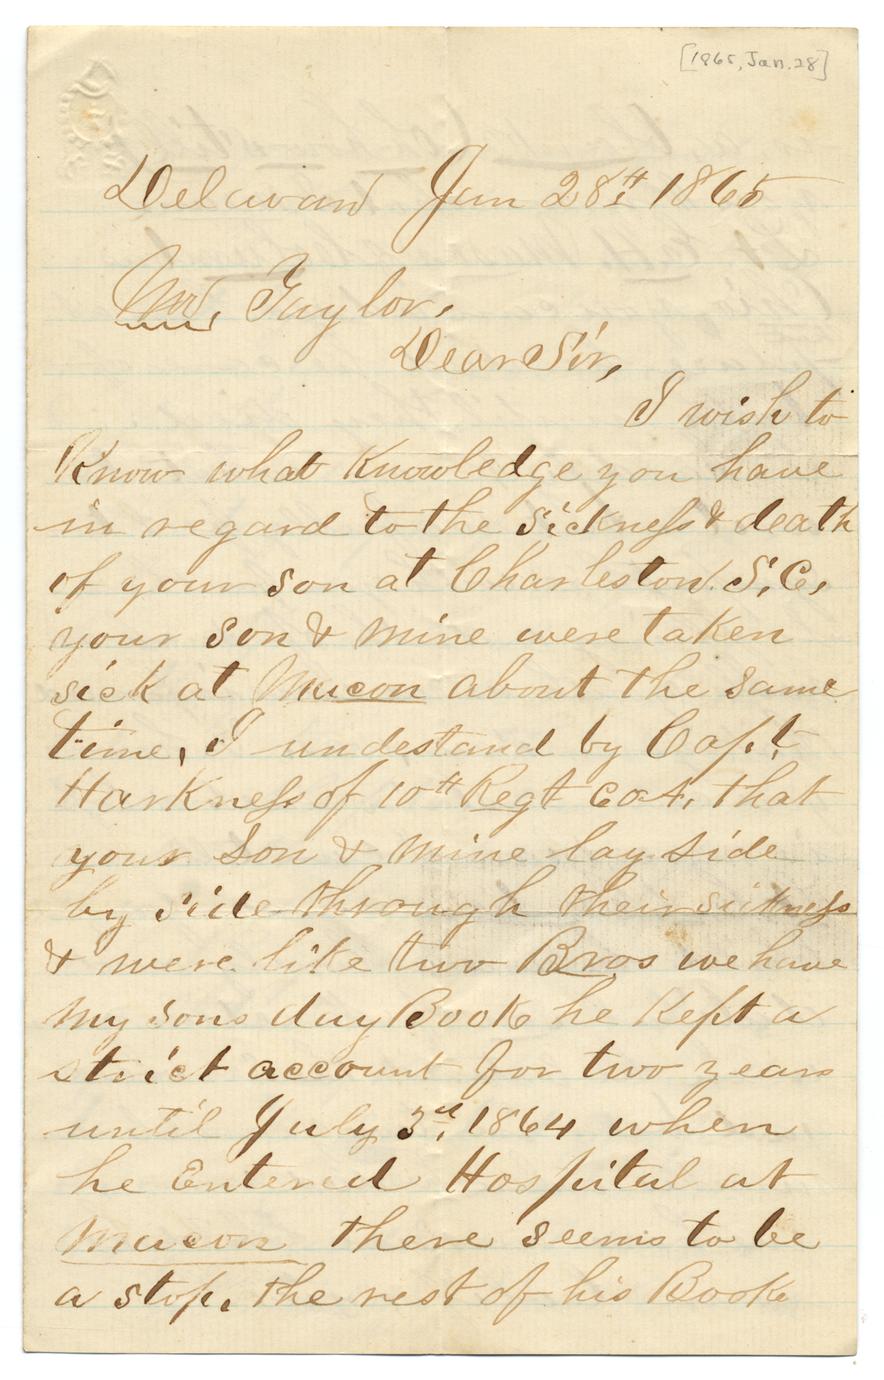 [1865, Jan. 28]
Delawan Jan 28th 1865
Mr. Taylor,
Dear Sir,
I wish to
Know what Knowledge you have
in regard to the sickness & death
of your son at Charleston. S, C,
your son & mine were taken
sick at Macon about the same
time, I undestand by Capt.
Harkness of 10th Regt Cav. that
your Son & mine lay side
by side through their sickness
& were like two Bros we have
my sons day Book he Kept a
strict account for two years
until July 3rd, 1864 when
he Entered Hospital at
Macon there seems to be
a stop. the rest of his Book